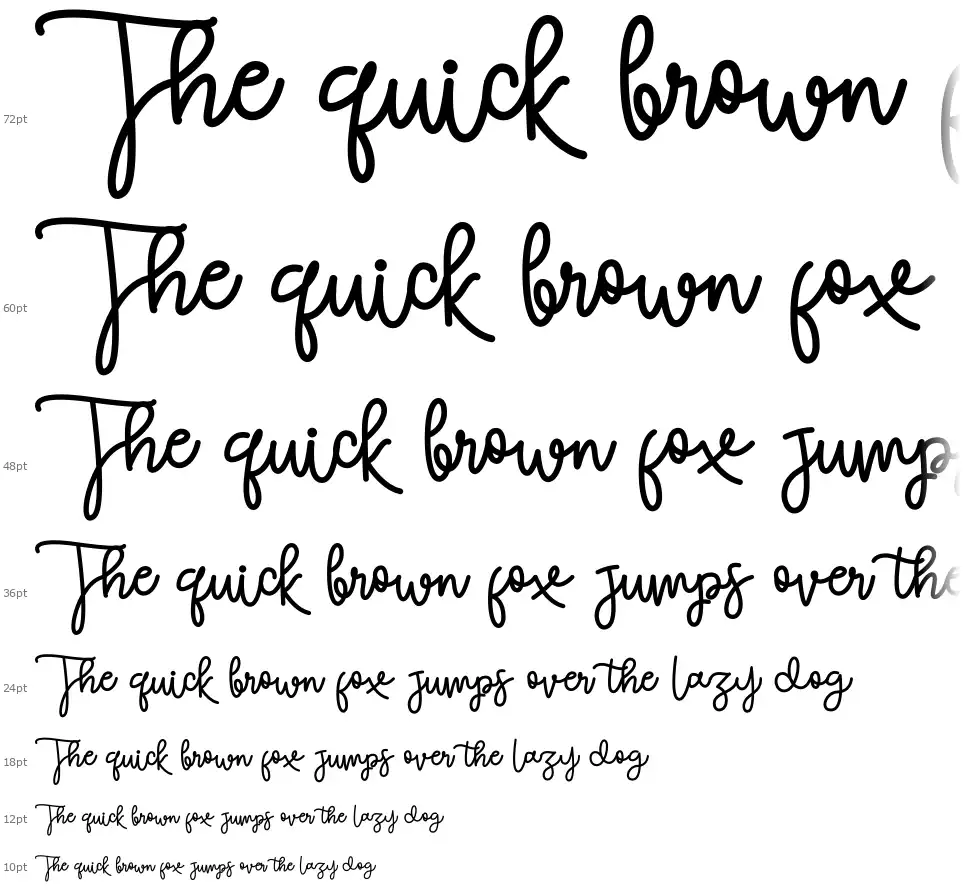 72pt The quick brown
60pt The quick brown fox
48pt The quick brown fox jump
36pt The quick brown fox jumps over the
24pt The quick brown fox jumps over the lazy dog
18pt The quick brown fox jumps over the lazy dog
12pt The quick brown fox jumps over the lazy dog
10pt The quick brown fox jumps over the lazy dog